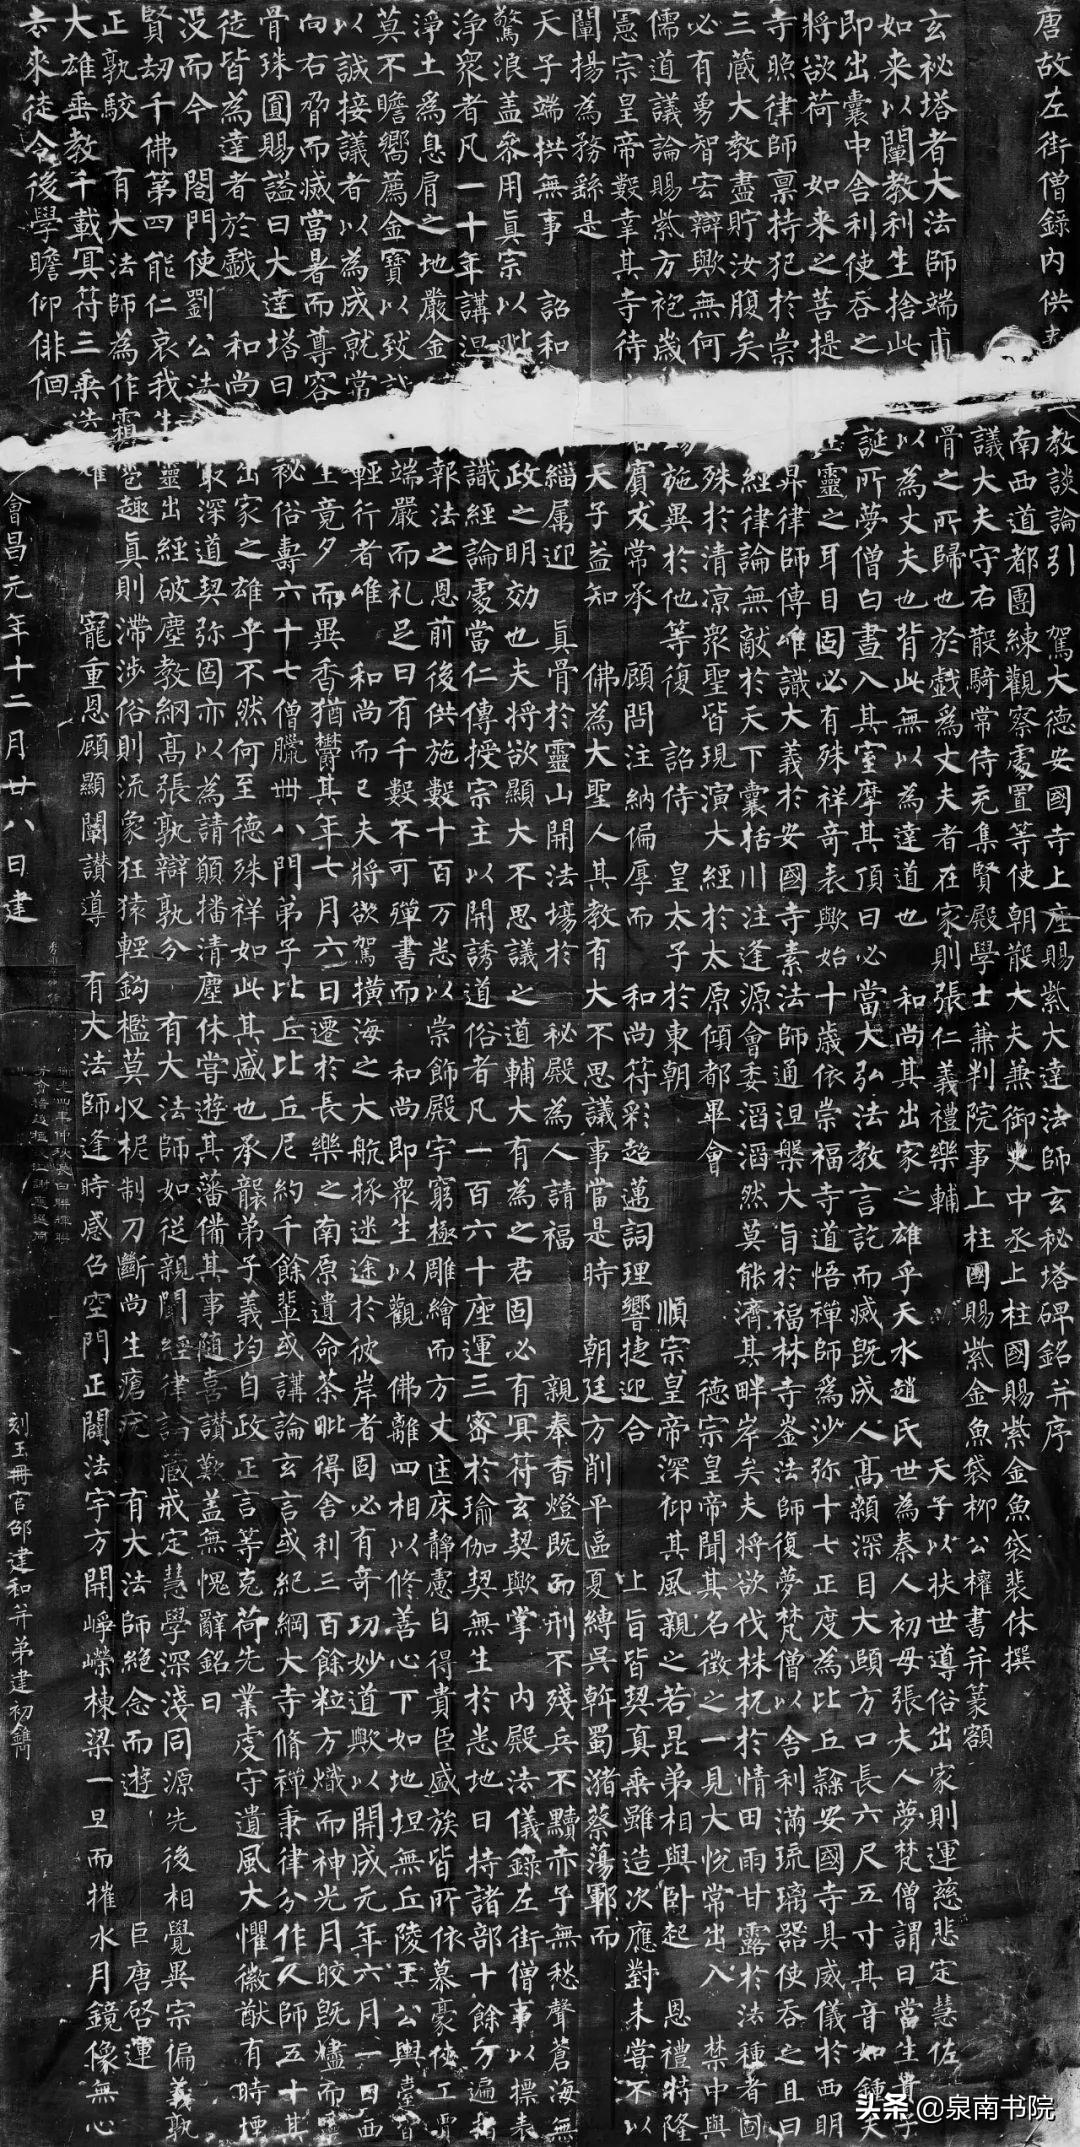 唐故左街僧錄內供奉 教談論引 駕大德安國寺上座賜紫大達法師玄秘塔碑銘并序
南西道都團練觀察處置等使朝散大夫兼御史中丞上柱國賜紫金魚袋裴休撰
議大夫守右散騎常侍充集賢殿學士兼判院事上柱國賜紫金魚袋柳公權書并篆額
玄秘塔者大法師端甫 骨之所歸也於戲為丈夫者在家則張仁義禮樂輔 天子以扶世導俗出家則運慈悲定慧佐
如来以闡教利生捨此 以為丈夫也背此無以為達道也 和尚其出家之雄乎天水趙氏世為秦人初母張夫人夢梵僧謂曰當生貴子
即出囊中舍利使吞之 誕所夢僧白晝入其室摩其頂曰必當大弘法教言訖而滅既成人高顙深目大頤方口長六尺五寸其音如鍾夫
將欲荷 如来之菩提 靈之耳目固必有殊祥奇表歟始十歲依崇福寺道悟禪師為沙弥十七正度為比丘隸安國寺具威儀於西明
寺照律師禀持犯於崇 昇律師傳唯識大義於安國寺素法師通涅槃大旨於福林寺崟法師復夢梵僧以舍利滿琉璃器使吞之且曰
三藏大教盡貯汝腹矣 經律論無敵於天下囊括川注逢源會委滔滔然莫能濟其畔岸矣夫將欲伐株杌於情田雨甘露於法種者固
必有勇智宏辯歟無何 殊於清凉衆聖皆現演大經於太原傾都畢會 德宗皇帝聞其名徵之一見大悅常出入 禁中與
儒道議論賜紫方袍歲 施異於他等復 詔侍 皇太子於東朝 順宗皇帝深仰其風親之若昆弟相與卧起 恩禮特隆
憲宗皇帝數幸其寺待 賓友常承 顧問注納偏厚而 和尚符彩超邁詞理響捷迎合 上旨皆契真乘雖造次應對未嘗不以
闡揚為務繇是 天子益知 佛為大聖人其教有大不思議事當是時 朝廷方削平區夏縛吳斡蜀潴蔡蕩鄆而
天子端拱無事 詔和 緇属迎 真骨於靈山開法場於 秘殿為人請福 親奉香燈既而刑不殘兵不黷赤子無愁聲蒼海無
驚浪盖叅用真宗以毗 政之明効也夫將欲顯大不思議之道輔大有為之君固必有冥符玄契歟掌 內殿法儀錄左街僧事以摽表
淨衆者凡一十年講涅 識經論處當仁傳授宗主以開誘道俗者凡一百六十座運三密於瑜伽契無生於悉地日持諸部十餘万遍指
淨土為息肩之地嚴金 報法之恩前後供施數十百万悉以崇飾殿宇窮極雕繪而方丈匡床靜慮自得貴臣盛族皆所依慕豪俠工賈
莫不瞻嚮薦金寶以致誠 端嚴而礼足日有千數不可殫書而 和尚即衆生以觀 佛離四相以修善心下如地坦無丘陵王公輿臺皆
以誠接議者以為成就常 輕行者唯 和尚而已夫將欲駕橫海之大航拯迷途於彼岸者固必有奇功妙道歟以開成元年六月一日西
向右脅而滅當暑而尊容 生竟夕而異香猶鬱其年七月六日遷於長樂之南原遺命荼毗得舍利三百餘粒方熾而神光月皎既燼而靈
骨珠圓賜謚曰大達塔曰 秘俗壽六十七僧臘卌八門弟子比丘比丘尼約千餘輩或講論玄言或紀綱大寺脩禪秉律分作人師五十其
徒皆為達者於戲 和尚 出家之雄乎不然何至德殊祥如此其盛也承襲弟子義均自政 正言等克荷先業虔守遺風大懼徽猷有時堙
没而今 閤門使劉公法 最深道契弥固亦以為請願播清塵休嘗遊其藩備其事随喜讚歎盖無愧辭銘曰
賢劫千佛第四能仁哀我生靈出經破塵教網高張孰辯孰分 有大法師如從親聞經律論藏戒定慧學深淺同源先後相覺異宗偏義孰
正孰駮 有大法師為作霜雹趣真則滞涉俗則流象狂猿輕鈎檻莫收柅制刀斷尚生瘡疣 有大法師絕念而遊 巨唐啓運
大雄垂教千載冥符三乘迭耀 寵重恩顧顯闡讚導 有大法師逢時感召空門正闢法宇方開崢嶸棟梁一旦而摧水月鏡像無心
去来徒令後學瞻仰俳佪
會昌元年十二月廿八日建
刻玉冊官邵建和并弟建初鐫
头条 @泉南书院